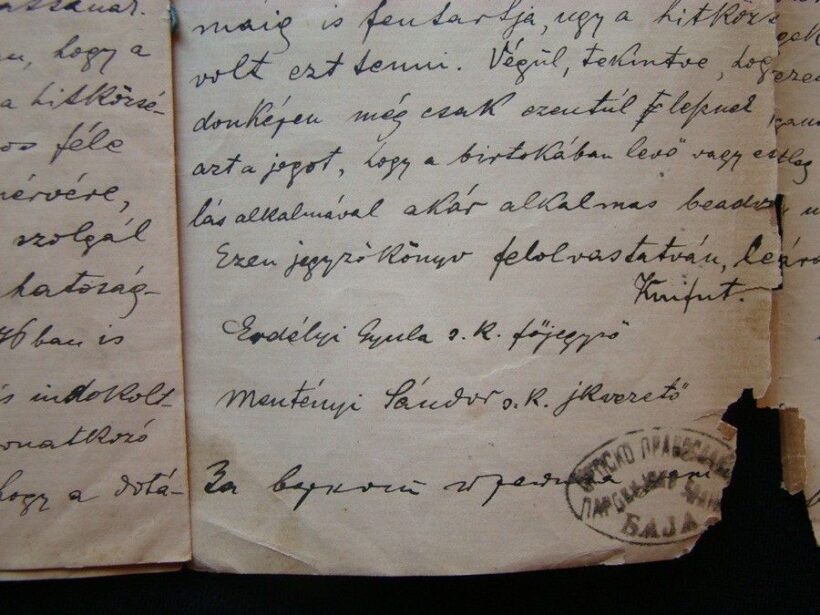 assanak.
hogy a
a hitközsé-
os féle
érvére,
szolgál
hatóság-
76ban is
s indokolt-
onatkozó
hogy a dotá-
máig is fentartja, ugy a hitközs
volt ezt tenni. Végül, tekintve, hog
donképen még csak ezentúl lépnek
azt a jogot, hogy a birtokában levő vagy esetleg
lás alkalmával akár alkalmas beadv
Ezen jegyzőkönyv felolvastatván, leára
Kmft.
Erdélyi Gyula s. k. főjegyző
Mentényi Sándor s. k. jkvezető
За
СРПСКО ПРАВОСЛАВ
БАЈА